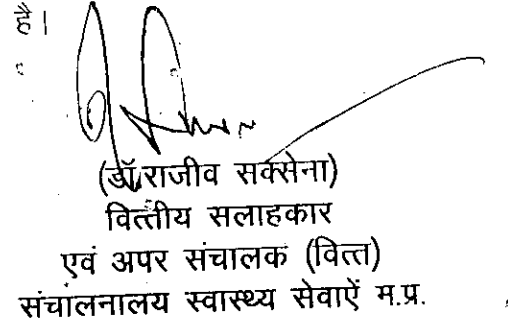 है।
(डॉ.राजीव सक्सेना)
वित्तीय सलाहकार
एवं अपर संचालक (वित्त)
संचालनालय स्वास्थ्य सेवाऐं म.प्र.